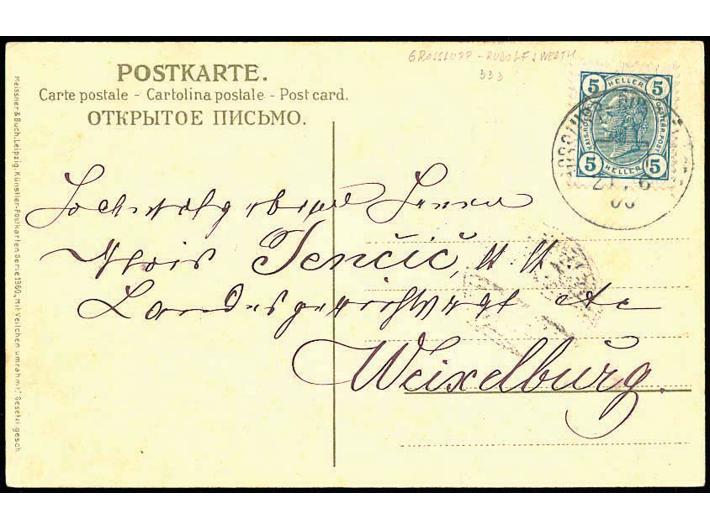 GROSSLUPP - RUDOLFSWERTH
333
POSTKARTE.
Carte postale - Cartolina postale - Post card.
ОТКРЫТОЕ ПИСЬМО.
5 HELLER 5
5 HELLER 5
21. 6
06
Hochwolgeborne Herrn
Alois Jenčič,
Landesgerichtsrat etc
Weixelburg.
Meissner & Buch, Leipzig. Künstler-Postkarten Serie 1360, mit Veilchen umrahmt" Gesetzl. gesch.